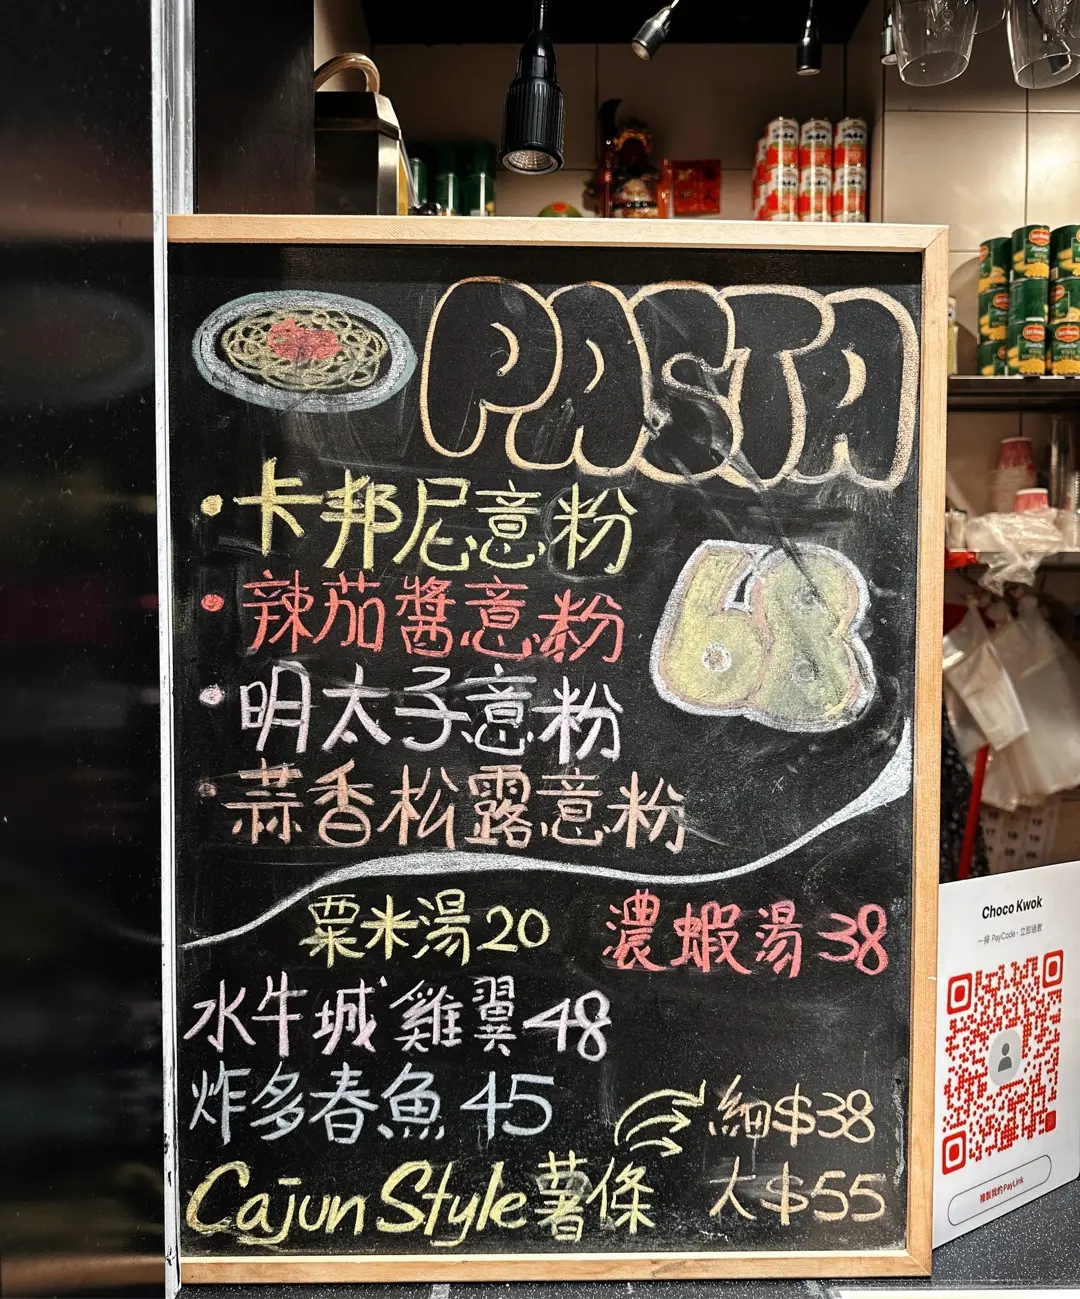 PASTA
卡邦尼意粉
辣茄醬意粉
明太子意粉
蒜香松露意粉
68
粟米湯20
濃蝦湯38
水牛城雞翼48
炸多春魚45
Cajun Style薯條
細$38
大$55
Choco Kwok
一掃 PayCode，立即過數
複製我的PayLink